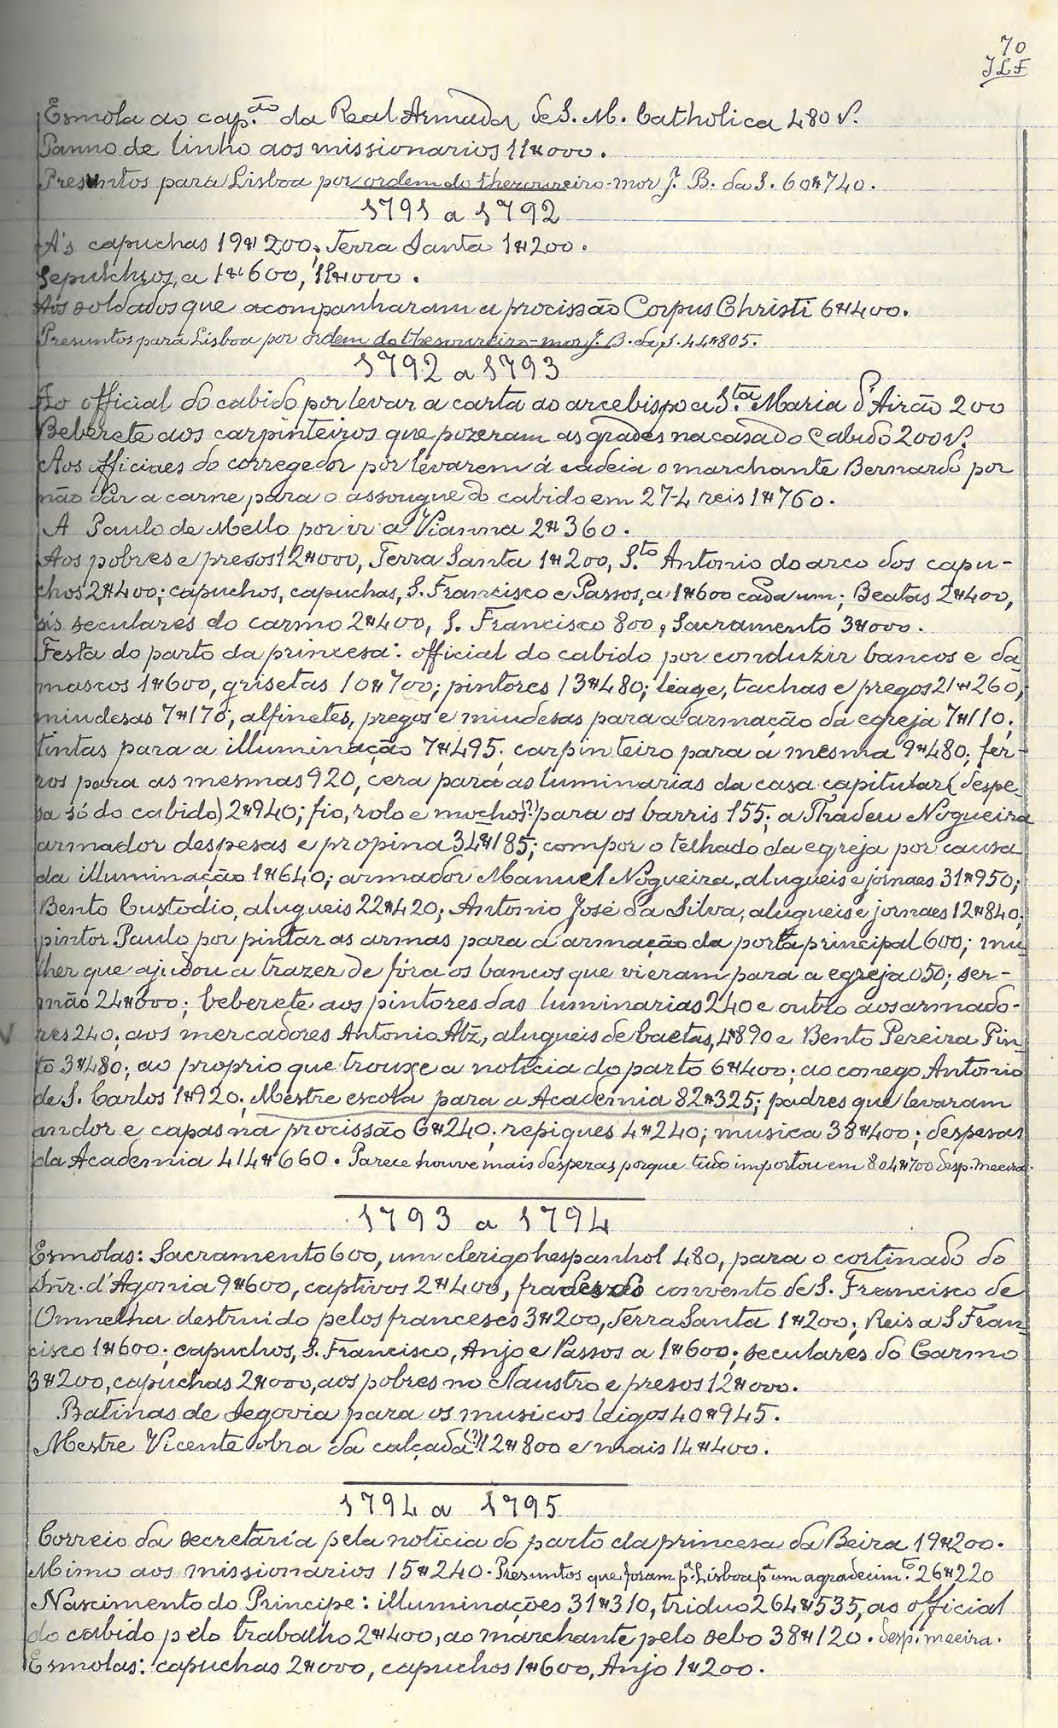 70
JLF
Esmola ao cap.ão da Real Armada de S. M. Catholica 480 rs.
Panno de linho aos missionarios 11#000.
Presuntos para Lisboa por ordem do thezoureiro-mor J. B. da S. 60#740.
1791 a 1792
A's capuchas 19#200; Terra Santa 1#200.
Sepulchros, a 1#600, 11#000.
Aos soldados que acompanharam a procissão Corpus Christi 6#400.
Presuntos para Lisboa por ordem do thesoureiro-mor J. B. da S. 44#805.
1792 a 1793
Ao official do cabido por levar a carta ao arcebispo a S.ta Maria d'Airão 200
Beberete aos carpinteiros que pozeram as grades na casa do Cabido 200 rs.
Aos officiaes do corregedor por levarem á cadeia o marchante Bernardo por
não dar a carne para o assougue do cabido em 27-4 reis 1#760.
A Paulo de Mello por ir a Vianna 2#360.
Aos pobres e presos 12#000, Terra Santa 1#200, S.to Antonio do arco dos capu-
chos 2#400; capuchos, capuchas, S. Francisco e Passos, a 1#600 cada um; Beatas 2#400,
ás seculares do carmo 2#400, S. Francisco 800, Sacramento 3#000.
Festa do parto da princesa: official do cabido por conduzir bancos e da-
mascos 1#600, grisetas 10#700; pintores 13#480; liage, tachas e pregos 21#260,
miudesas 7#170, alfinetes, pregos e miudesas para a armação da egreja 7#110;
tintas para a illuminação 7#495; carpinteiro para a mesma 9#480; fer-
ros para as mesmas 920, cera para as luminarias da casa capitular (despe-
sa só do cabido) 2#940; fio, rolo e mochos (?) para os barris 155; a Thadeu Nogueira
armador despesas e propina 34#185; compor o telhado da egreja por causa
da illuminação 1#640; armador Manuel Nogueira, alugueis e jornaes 31#950;
Bento Custodio, alugueis 22#420; Antonio José da Silva, alugueis e jornaes 12#840;
pintor Paulo por pintar as armas para a armação da porta principal 600; mu-
lher que ajudou a trazer de fóra os bancos que vieram para a egreja 050; ser-
mão 24#000; beberete aos pintores das luminarias 240 e outro aos armado-
res 240; aos mercadores Antonio Alz, alugueis de baetas, 4#890 e Bento Pereira Pin-
to 3#480; ao proprio que trouxe a noticia do parto 6#400; ao conego Antonio
de S. Carlos 1#920; Mestre escola para a Academia 82#325; padres que levaram
andor e capas na procissão 6#240; repiques 4#240; musica 38#400; despesas
da Academia 414#660. Parece houve mais despezas porque tudo importou em 804#700 desp. meeira.
1793 a 1794
Esmolas: Sacramento 600, um clerigo hespanhol 480, para o cortinado do
Snr. d'Agonia 9#600, captivos 2#400, frades do convento de S. Francisco de
Ommelha destruido pelos franceses 3#200, Terra Santa 1#200; Reis a S Fran-
cisco 1#600; capuchos, S. Francisco, Anjo e Passos a 1#600; seculares do Carmo
3#200, capuchas 2#000, aos pobres no claustro e presos 12#000.
Batinas de Segovia para os musicos leigos 40#945.
Mestre Vicente obra da calçada (?) 12#800 e mais 14#400.
1794 a 1795
Correio da secretaria pela noticia do parto da princesa da Beira 19#200.
Mimo aos missionarios 15#240. Presuntos que foram p.a Lisboa p.a um agradecim.to 26#220
Nascimento do Principe: illuminações 31#310, triduo 264#535, ao official
do cabido pelo trabalho 2#400, ao marchante pelo sebo 38#120. desp. meeira.
Esmolas: capuchas 2#000, capuchos 1#600, Anjo 1#200.